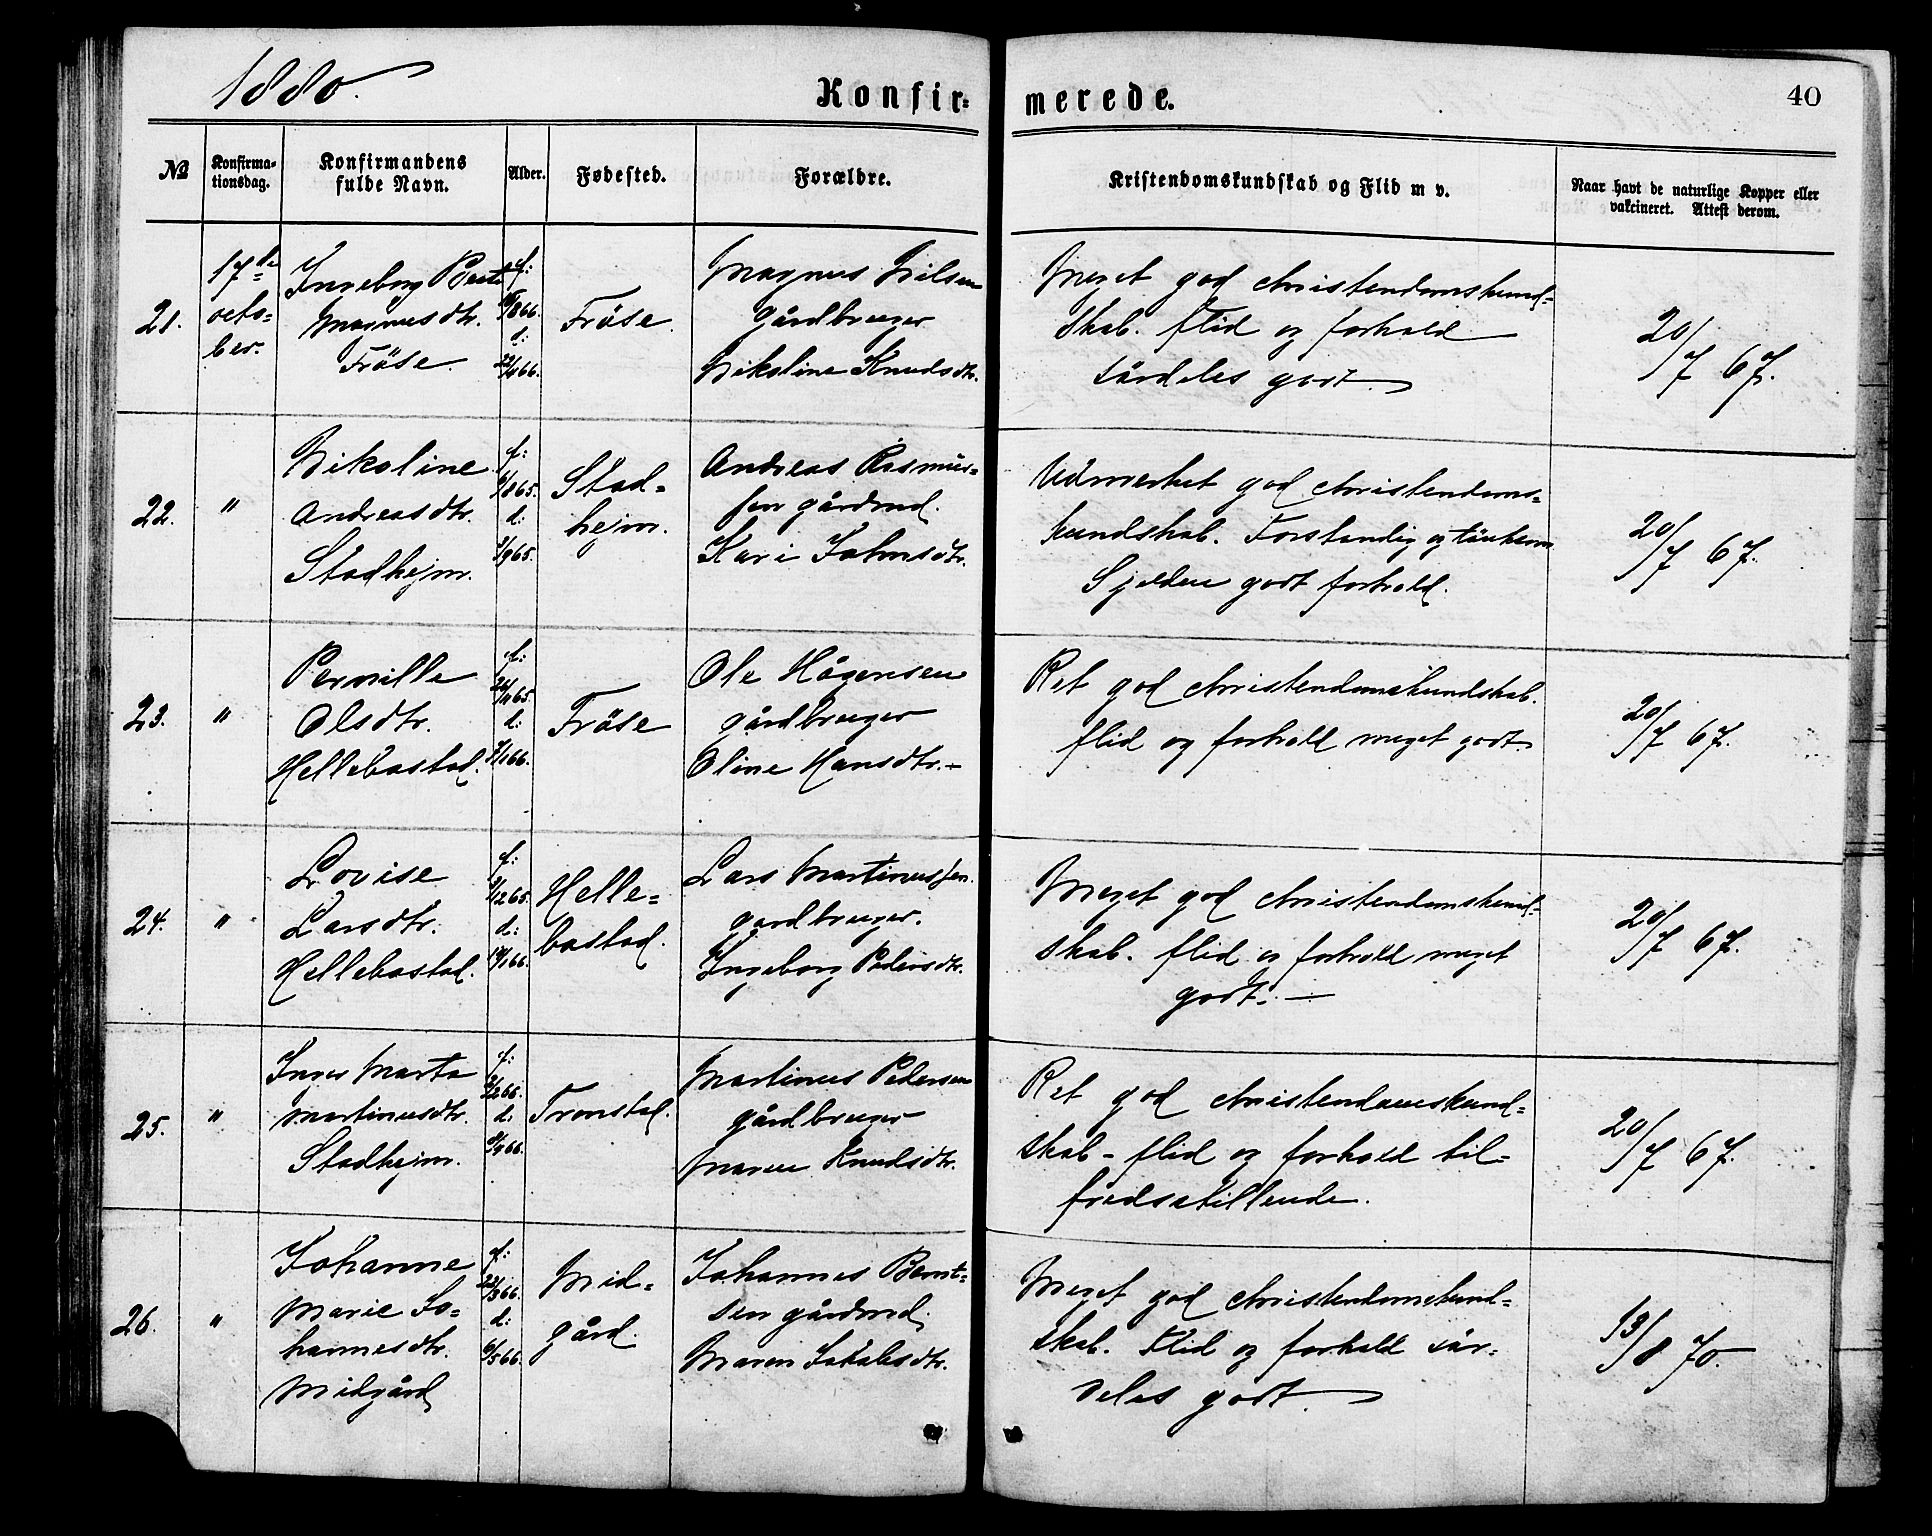 1880.
Konfir=
merede.
40
No
Konfirma=
tionsdag.
Konfirmandens
fulde Navn.
Alder.
Fødested.
Forældre.
Kristendomskundskab og Flid m v.
Naar havt de naturlige Kopper eller
vakcineret. Attest derom.
21.
17de
octo=
ber.
Ingeborg
Magnusdtr.
Fröse.
f:
866.
d:
22/4 66.
Fröse.
Magnus Nilsen
gårdbruger
Nikoline Knudsdtr.
Meget god christendomskund=
skab. flid og forhold
särdeles godt.
20/7 67.
22.
"
Nikoline
Andreasdtr.
Stadhejm.
f:
865.
d:
965.
Stad=
hejm.
Andreas Rasmus=
sen gårdmd.
Kari Johnsdtr.
Udmerket god christendoms=
kundskab. Forstandig og
Sjelden godt forhold.
20/7 67.
23.
"
Pernille
Olsdtr.
Hellebostad.
f:
65.
d:
166.
Fröse
Ole Hågensen
gårdbruger
Oline Hansdtr.-
Ret god christendomskundskab.
flid og forhold meget godt.
20/7 67.
24.
"
Lovise
Larsdtr.
Hellebostad.
f:
1265.
d:
14/1 66.
Helle=
bostad.
Lars Martinussen.
gardbruger.
Ingeborg Pedersdtr.
Meget god christendomskund=
skab. flid og forhold meget
godt. —
20/7 67.
25.
"
Inger Marta
Martinusdtr.
Stadhejm.
f:
266.
d:
66.
Tronstad.
Martinus Pedersen
gårdbruger
Maren Knudsdtr.
Ret god christendomskund=
skab - flid og forhold til=
fredsstillende.
20/7 67.
26.
"
Johanne
Marie Jo=
hannesdtr.
Midgård
f:
22/3 66.
d:
6/5 66.
Mid=
gård.
Johannes Bernt=
sen gårdmd.
Maren Jakobsdtr.
Meget god christendomskund=
skab. Flid og forhold sär=
deles godt.
13/8 70.